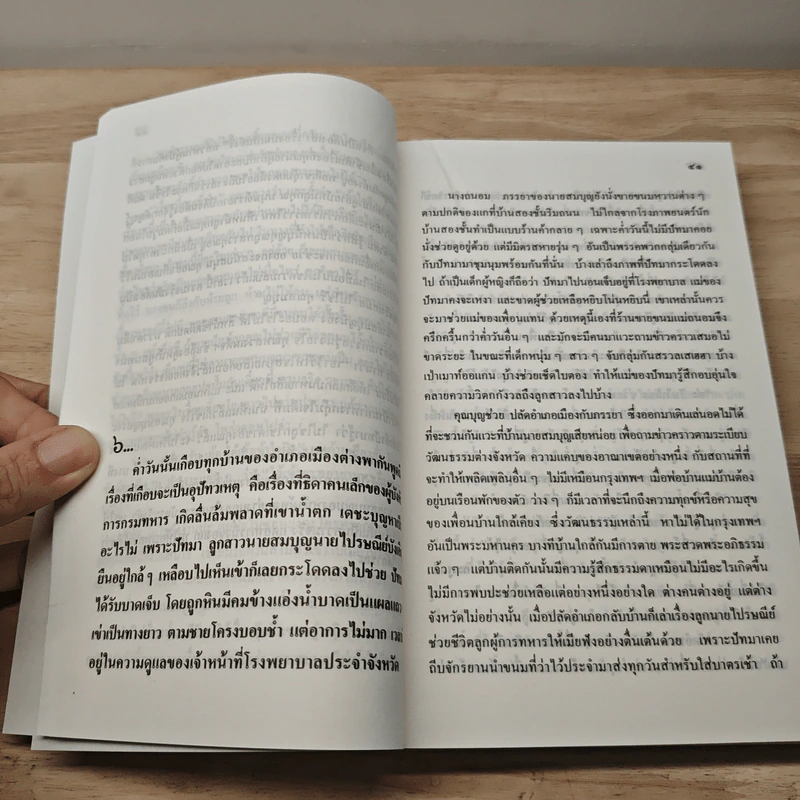 ๖...
ค่ำวันนั้นเกือบทุกบ้านของอำเภอเมืองต่างพากัน
เรื่องที่เกือบจะเป็นอุปัทวเหตุ คือเรื่องที่ธิดาคนเล็กของ
การกรมทหาร เกิดลื่นล้มพลาดที่เขาน้ำตก เดชะบุญ
อะไรไม่ เพราะปัทมา ลูกสาวนายสมบุญนายไปรษณีย์
ยืนอยู่ใกล้ๆ เหลือบไปเห็นเข้าก็เลยกระโดดลงไปช่วย
ได้รับบาดเจ็บ โดยถูกหินมีคมข้างแอ่งน้ำบาดเป็นแผล
เข่าเป็นทางยาว ตามชายโครงบอบช้ำ แต่อาการไม่มาก
อยู่ในความดูแลของเจ้าหน้าที่โรงพยาบาลประจำจังหวัด
๔๑
นางถนอม ภรรยาของนายสมบุญยังนั่งขายขนมหวานต่าง ๆ
ตามปกติของแกที่บ้านสองชั้นริมถนน ไม่ไกลจากโรงภาพยนตร์นัก
บ้านสองชั้นทำเป็นแบบร้านค้ากลาย ๆ เฉพาะค่ำวันนี้ไม่มีปัทมาคอย
นั่งช่วยดูอยู่ด้วย แต่มีมิตรสหายรุ่น ๆ อันเป็นพรรคพวกกลุ่มเดียวกัน
กับปัทมามาชุมนุมพร้อมกันที่นั่น บ้างเล่าถึงภาพที่ปัทมากระโดดลง
ไป ถ้าเป็นเด็กผู้หญิงก็ถือว่า ปัทมาไปนอนเจ็บอยู่ที่โรงพยาบาล แม่ของ
ปัทมาคงจะเหงา และขาดผู้ช่วยเหลือหยิบโน่นหยิบนี่ เขาเหล่านั้นควร
จะมาช่วยแม่ของเพื่อนแทน ด้วยเหตุนี้เองที่ร้านขายขนมแม่ถนอมจึง
ครึกครื้นกว่าค่ำวันอื่น ๆ และมักจะมีคนมาแวะถามข่าวคราวเสมอไม่
ขาดระยะ ในขณะที่เด็กหนุ่ม ๆ สาว ๆ จับกลุ่มกันสรวลเสเฮฮา บ้าง
เป่าเมาท์ออแกน บ้างช่วยเช็ดใบตอง ทำให้แม่ของปัทมารู้สึกอบอุ่นใจ
คลายความวิตกกังวลถึงลูกสาวลงไปบ้าง
คุณบุญช่วย ปลัดอำเภอเมืองกับภรรยา ซึ่งออกมาเดินเล่นอดไม่ได้
ที่จะชวนกันแวะที่บ้านนายสมบุญเสียหน่อย เพื่อถามข่าวคราวตามระเบียบ
วัฒนธรรมต่างจังหวัด ความแคบของอาณาเขตอย่างหนึ่ง กับสถานที่ที่
จะทำให้เพลิดเพลินอื่น ๆ ไม่มีเหมือนกรุงเทพฯ เมื่อพ่อบ้านแม่บ้านต้อง
อยู่บนเรือนพักของตัว ว่าง ๆ ก็มีเวลาที่จะนึกถึงความทุกข์หรือความสุข
ของเพื่อนบ้านใกล้เคียง ซึ่งวัฒนธรรมเหล่านี้ หาไม่ได้ในกรุงเทพฯ
อันเป็นพระมหานคร บางทีบ้านใกล้กันมีการตาย พระสวดพระอภิธรรม
แจ้ว ๆ แต่บ้านติดกันนั้นมีความรู้สึกธรรมดาเหมือนไม่มีอะไรเกิดขึ้น
ไม่มีการพบปะช่วยเหลือแต่อย่างหนึ่งอย่างใด ต่างคนต่างอยู่ แต่ต่าง
จังหวัดไม่อย่างนั้น เมื่อปลัดอำเภอกลับบ้านก็เล่าเรื่องลูกนายไปรษณีย์
ช่วยชีวิตลูกผู้การทหารให้เมียฟังอย่างตื่นเต้นด้วย เพราะปัทมาเคย
ถีบจักรยานนำขนมที่ว่าไว้ประจำมาส่งทุกวันสำหรับใส่บาตรเช้า ถ้า